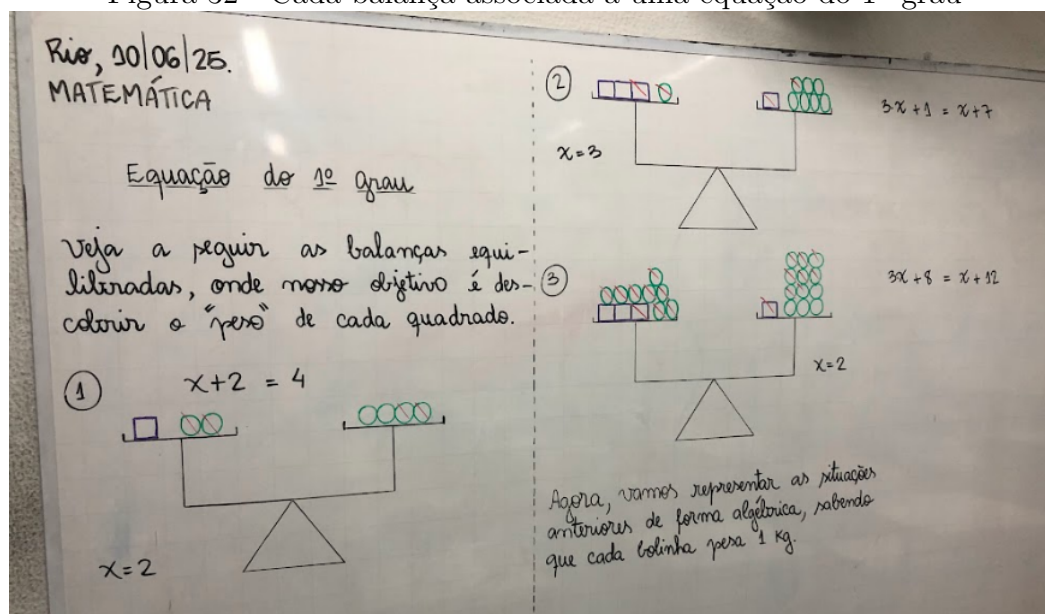 Figura 32 - Cada balança associada a uma equação do 1º grau
Rio, 10/06/25.
MATEMÁTICA
Equação do 1º grau
Veja a seguir as balanças equi-
libradas, onde nosso objetivo é des-
cobrir o "peso" de cada quadrado.
1
x+2 = 4
x=2
2
3x+1 = x+7
x=3
3
3x+8 = x+12
x=2
Agora, vamos representar as situações
anteriores de forma algébrica, sabendo
que cada bolinha pesa 1 kg.